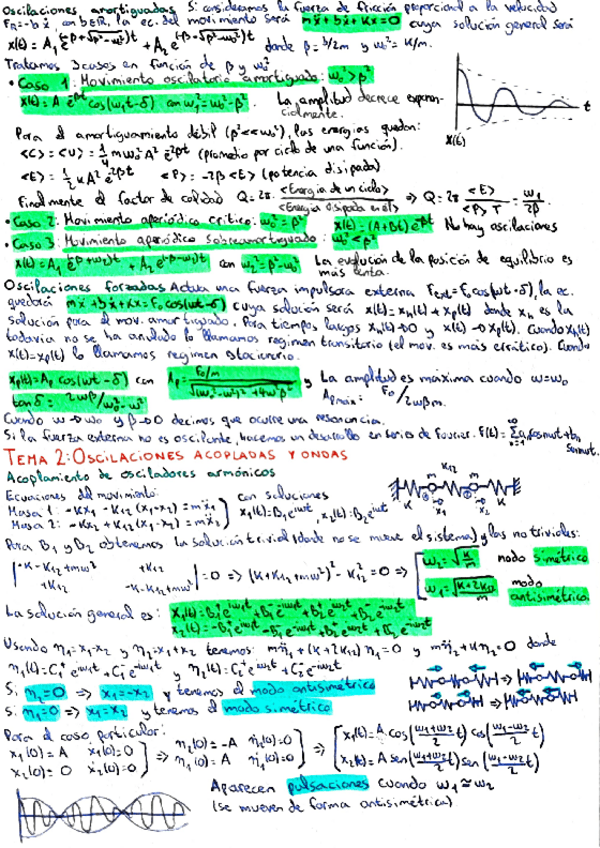 Oscilaciones amortiguadas Si consideramos la fuerza de fricción proporcional a la velocidad
F_R=-bẋ, con b∈R, la ec. del movimiento será mẍ+bẋ+Kx=0 cuya solución general será
x(t)=A₁e^(-β+√(β²-ω₀²))t + A₂e^(-β-√(β²-ω₀²))t donde β=b/2m y ω₀²=K/m.
Tratamos 3 casos en función de β y ω₀²
• Caso 1: Movimiento oscilatorio amortiguado: ω₀²>β²
x(t)=A e^-βt cos(ω₁t-δ) con ω₁²=ω₀²-β². La amplitud decrece exponen-
cialmente.
Para el amortiguamiento débil (β²<<ω₀²), las energías quedan:
<C>=<U>=1/4 mω₀²A²e^-2βt (promedio por ciclo de una función).
<E>=1/2 KA²e^-2βt <P>=-2β<E> (potencia disipada)
Finalmente el factor de calidad Q=2π <Energía de un ciclo>/<Energía disipada en el> ⇒ Q=2π <E>/<P>T = ω₁/2β.
• Caso 2: Movimiento aperiódico crítico: ω₀²=β² x(t)=(A+Bt)e^-βt No hay oscilaciones
• Caso 3: Movimiento aperiódico sobreamortiguado: ω₀²<β²
x(t)=A₁e^(-β+ω₂)t + A₂e^(-β-ω₂)t con ω₂²=β²-ω₀² La evolución de la posición de equilibrio es
más lenta.
Oscilaciones forzadas Actua una fuerza impulsora externa F_ext=F₀cos(ωt-δ), la ec.
quedará mẍ+bẋ+Kx=F₀cos(ωt-δ) cuya solución será x(t)=x_h(t)+x_p(t) donde x_h es la
solución para el mov. amortiguado. Para tiempos largos x_h(t)→0 y x(t)→x_p(t). Cuando x_h(t)
todavía no se ha anulado lo llamamos regimen transitorio (el mov. es más errático). Cuando
x(t)=x_p(t) lo llamamos regimen estacionario.
x_p(t)=A_p cos(ωt-δ) con A_p=(F₀/m)/√((ω₀²-ω²)²+4ω²β²) y La amplitud es máxima cuando ω=ω₀
tan δ=2ωβ/ω₀²-ω² A_pmáx=F₀/2ωβm.
Cuando ω→ω₀ y β→0 decimos que ocurre una resonancia.
Si la fuerza externa no es oscilante, hacemos un desarrollo en series de Fourier.
TEMA 2: OSCILACIONES ACOPLADAS Y ONDAS
Acoplamiento de osciladores armónicos
Ecuaciones del movimiento:
Masa 1: -Kx₁-K₁₂(x₁-x₂)=mẍ₁
Masa 2: -Kx₂+K₁₂(x₁-x₂)=mẍ₂
con soluciones
x₁(t)=B₁e^iωt, x₂(t)=B₂e^iωt
Para B₁ y B₂ obtenemos la solución trivial (donde no se mueve el sistema) y las no triviales:
|-K-K₁₂+mω² +K₁₂|
|+K₁₂ -K-K₁₂+mω²| =0 ⇒ (K+K₁₂+mω²)²-K₁₂²=0 ⇒
ω₂=√(K/m) modo simétrico
ω₁=√((K+2K₁₂)/m) modo antisimétrico
La solución general es: x₁(t)=B₁⁺e^iω₁t+B₁⁻e^-iω₁t+B₂⁺e^iω₂t+B₂⁻e^-iω₂t
x₂(t)=-B₁⁺e^iω₁t-B₁⁻e^-iω₁t+B₂⁺e^iω₂t+B₂⁻e^-iω₂t
Usando η₁=x₁-x₂ y η₂=x₁+x₂ tenemos: mη̈₁+(K+2K₁₂)η₁=0 y mη̈₂+Kη₂=0 donde
η₁(t)=C₁⁺e^iω₁t+C₁⁻e^-iω₁t y η₂(t)=C₂⁺e^iω₂t+C₂⁻e^-iω₂t
Si η₂=0 ⇒ x₁=-x₂ y tenemos el modo antisimétrico
Si η₁=0 ⇒ x₁=x₂ y tenemos el modo simétrico
Para el caso particular:
x₁(0)=A ẋ₁(0)=0
x₂(0)=0 ẋ₂(0)=0
⇒ η₁(0)=-A η̇₁(0)=0
η₁(0)=A η̇₁(0)=0
⇒ x₁(t)=A cos((ω₁+ω₂)/2 t) cos((ω₁-ω₂)/2 t)
x₂(t)=A sen((ω₁+ω₂)/2 t) sen((ω₁-ω₂)/2 t)
Aparecen pulsaciones cuando ω₁≃ω₂
(se mueven de forma antisimétrica)